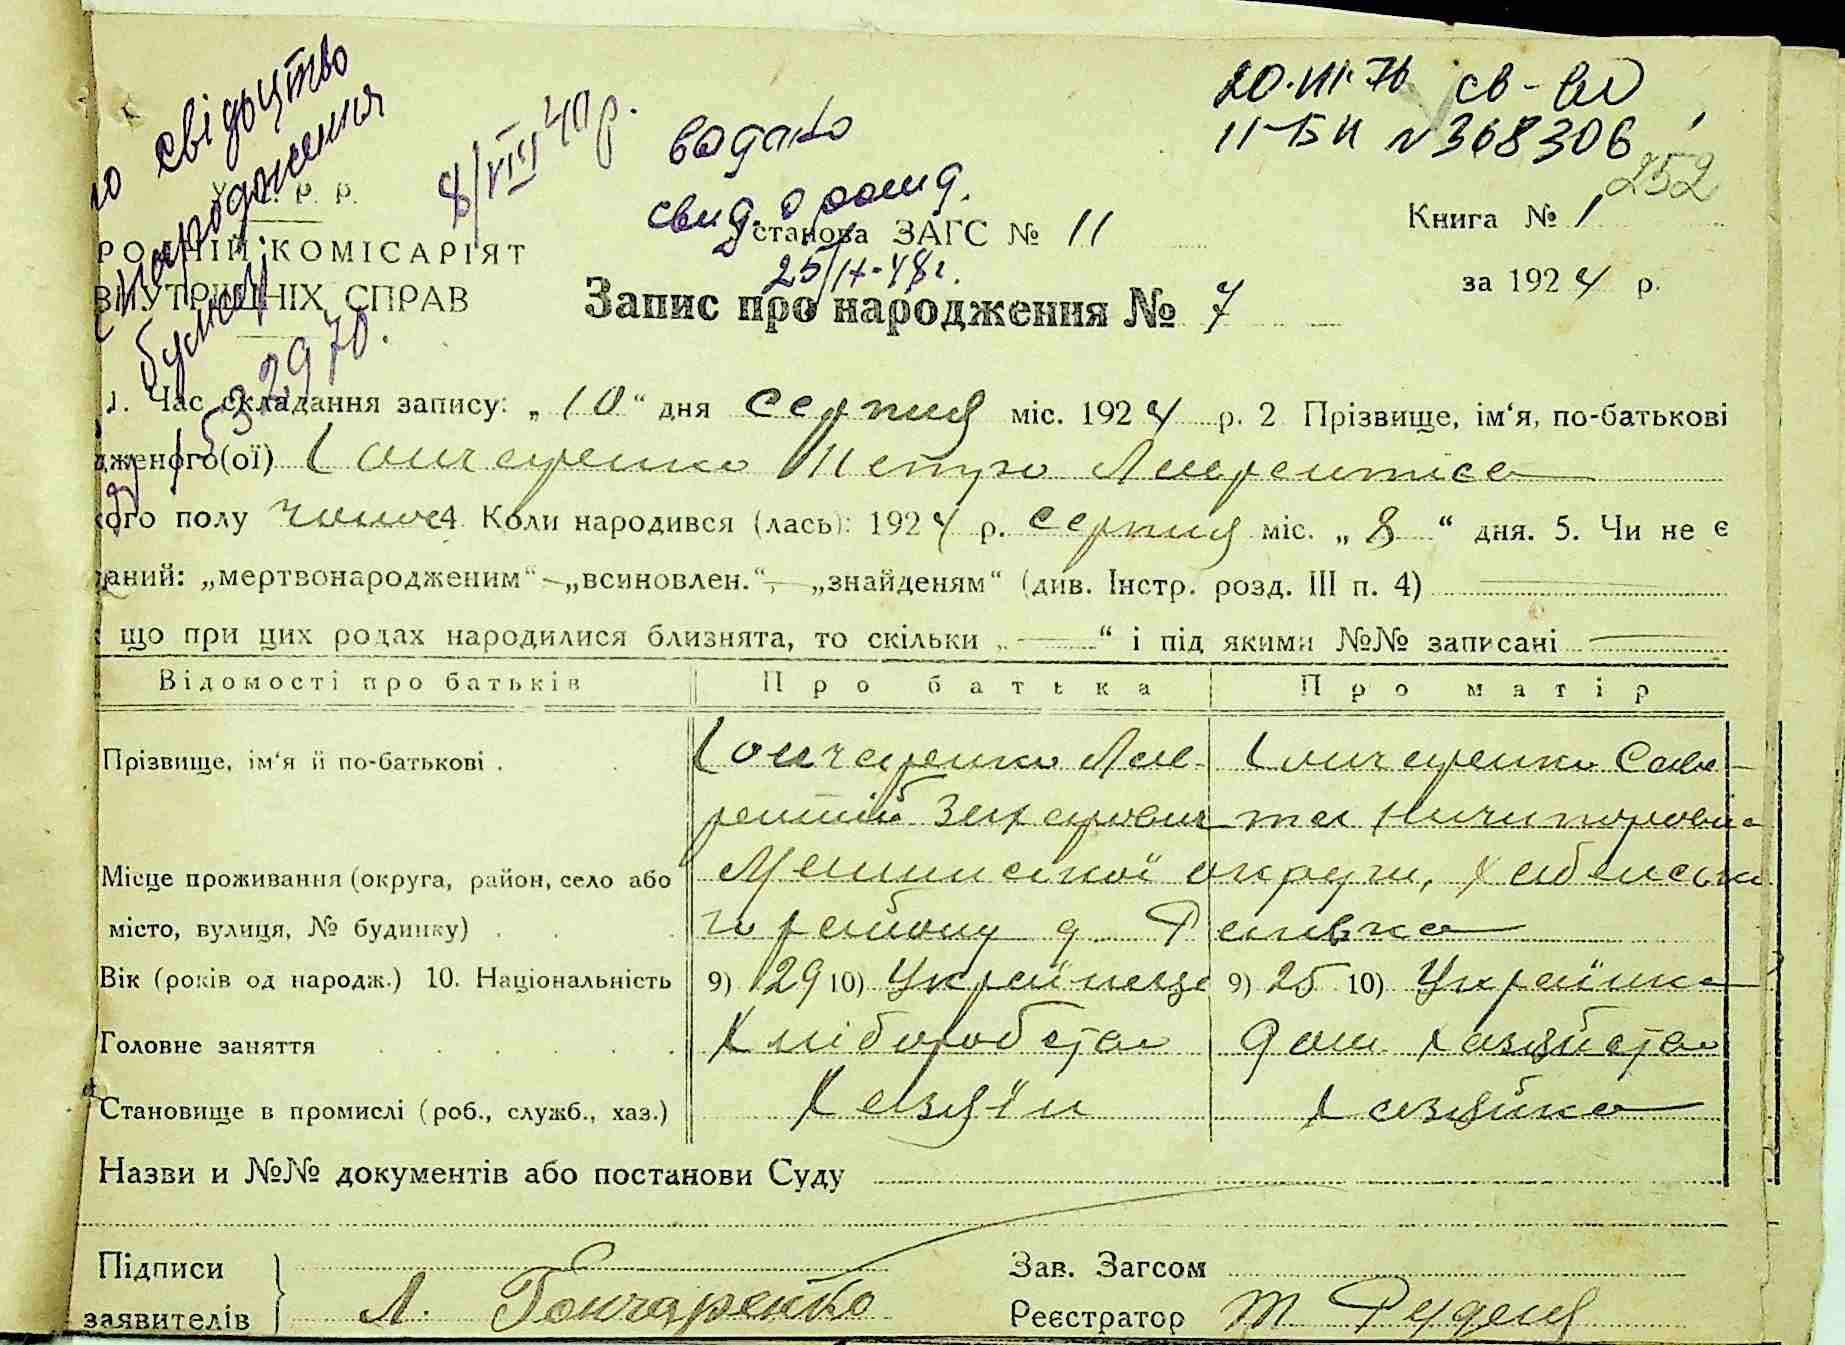 свідоцтво
народження
8/VIII 40 р.
видано
свид. о рожд.
25/IX-48 г.
20.VII.76 св-во
II-БК №368306
252
Р. Р.
КОМІСАРІЯТ
ВНУТРІШНІХ СПРАВ
532970.
Установа ЗАГС № 11
Книга № 1
за 1924 р.
Запис про народження № 7
1. Час складання запису: „10“ дня серпня міс. 1924 р. 2 Прізвище, ім‘я, по-батькові
дженого(ої) Гончаренко Петро Лаврентієв
кого полу чолов 4. Коли народився (лась): 1924 р. серпня міс. „8“ дня. 5. Чи не є
даний: „мертвонародженим“ — „всиновлен.“, — „знайденям“ (див. Інстр. розд. III п. 4)
що при цих родах народилися близнята, то скільки „—“ і під якими №№ записані
Відомості про батьків Про батька Про матір
Прізвище, ім‘я й по-батькові . Гончаренко Лав- Гончаренко
рентій Захарович Ничипоровна
Місце проживання (округа, район, село або округи,
місто, вулиця, № будинку) . го району
Вік (років од народж.) 10. Національність 9) 29 10) Українець 9) 25 10) Українка
Головне заняття Хліборобство дом. хазяйство
Становище в промислі (роб., служб., хаз.) Хазяїн Хазяйка
Назви и №№ документів або постанови Суду
Підписи
заявителів Л. Гончаренко
Зав. Загсом
Реєстратор